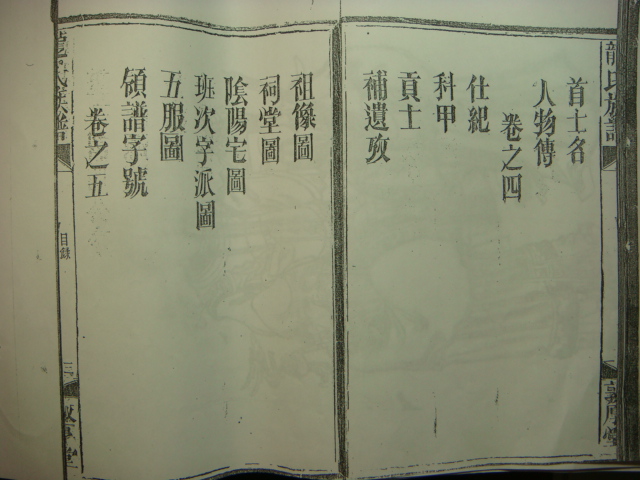 龍氏族譜
首士名
人物傳
卷之四
仕紀
科甲
貢士
補遺攷
敦厚堂
祖像圖
祠堂圖
陰陽宅圖
班次字派圖
五服圖
領譜字號
卷之五
龍氏族譜
目錄
三
敦厚堂